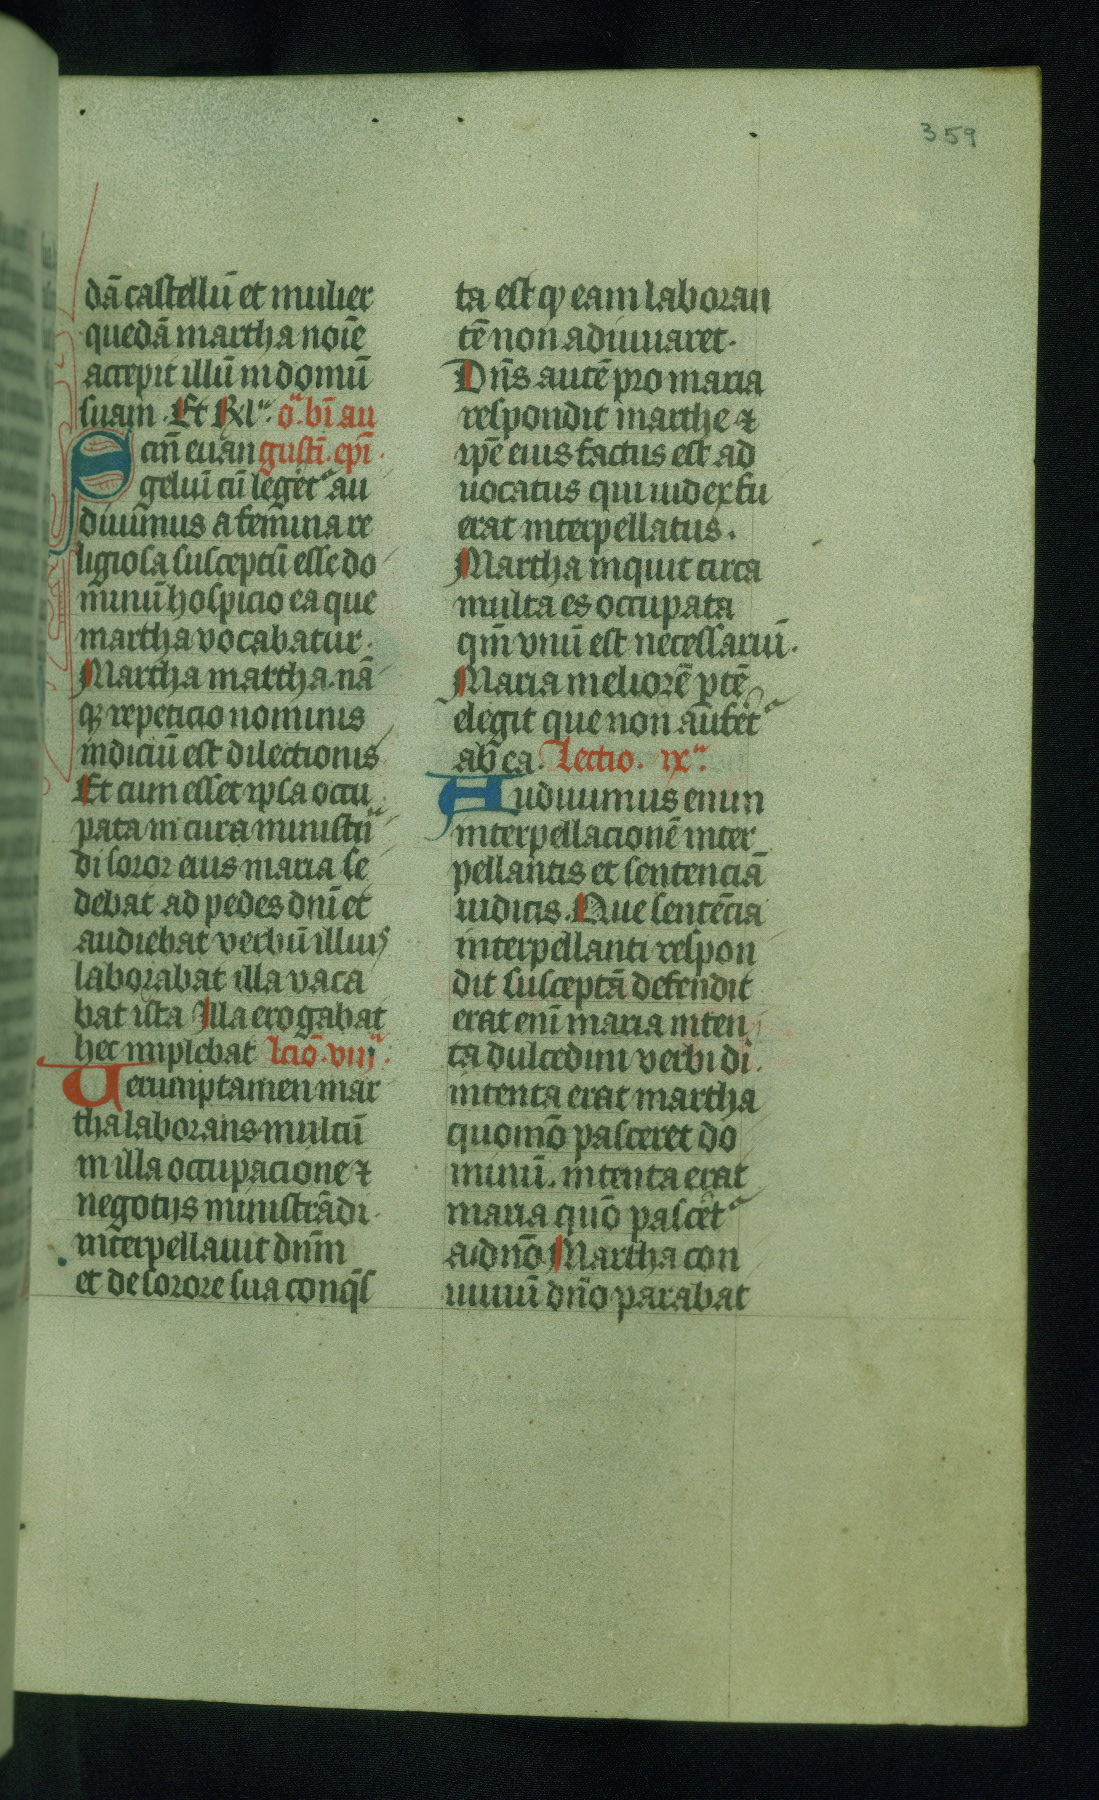 359
dā castellū et mulier
quedā martha noīe
accepit illū in domū
suam. Et Rel'. o. bī au
Scm̄ euan gustī. epī.
geliuī cū leger̄et au
diuimus a femina re
ligiosa susceptū esse do
minū hospicio ea que
martha vocabatur.
Martha martha. nā
q; repeticio nominis
indiciū est dilectionis
Et cum esset ipsa occu
pata in cura ministrā
di soror eius maria se
debat ad pedes dnī et
audiebat verbū illius
laborabat illa vaca
bat ista Illa erogabat
hec implebat lcīo. viij.
Uerumptamen mar
tha laborans multū
in illa occupacione ⁊
negotijs ministrādi.
interpellauit dnm̄
et de sorore sua conq̄s
ta est q̄ eam laboran
tē non adiuuaret.
Dn̄s autē pro maria
respondit marthe ⁊
ip̄e eius factus est ad
uocatus qui iudex fu
erat interpellatus.
Martha inquit circa
multa es occupata
qm̄ vnū est necessariū.
Maria meliorē ptē
elegit que non aufet̄
ab ea. Lectio. ix.
Audiuimus enim
interpellacionē inter
pellantis et sentenciā
iudicis. Que sentēcia
interpellanti respon
dit susceptā defendit
erat enī maria inten
ta dulcedini verbi dī.
intenta erat martha
quomō pasceret do
minū. intenta erat
maria quō pascet̄
a dn̄o Martha con
uiuiū dn̄o parabat